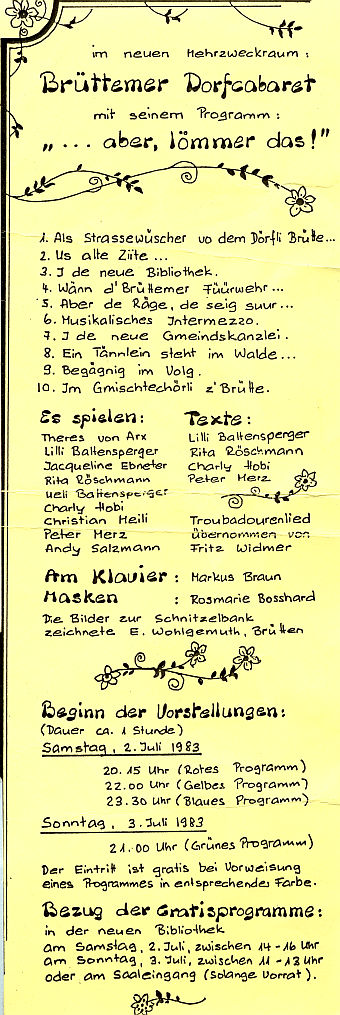 im neuen Mehrzweckraum:
Brüttemer Dorfcabaret
mit seinem Programm:
„... aber, lömmer das!"
1. Als Strassewüscher vo dem Dörfli Brütte...
2. Us alte Ziite...
3. I de neue Bibliothek.
4. Wänn d'Brüttemer Füürwehr...
5. Aber de Räge, de seig suur...
6. Musikalisches Intermezzo.
7. I de neue Gmeindskanzlei.
8. Ein Tännlein steht im Walde...
9. Begägnig im Volg.
10. Im Gmischtechörli z'Brütte.
Es spielen:
Theres von Arx
Lilli Baltensperger
Jacqueline Ebneter
Rita Röschmann
Ueli Baltensperger
Charly Hobi
Christian Meili
Peter Merz
Andy Salzmann
Texte:
Lilli Baltensperger
Rita Röschmann
Charly Hobi
Peter Merz
Troubadourenlied
übernommen von
Fritz Widmer
Am Klavier: Markus Braun
Masken : Rosmarie Bosshard
Die Bilder zur Schnitzelbank
zeichnete E. Wohlgemuth, Brütten
Beginn der Vorstellungen:
(Dauer ca. 1 Stunde)
Samstag, 2. Juli 1983
20.15 Uhr (Rotes Programm)
22.00 Uhr (Gelbes Programm)
23.30 Uhr (Blaues Programm)
Sonntag, 3. Juli 1983
21.00 Uhr (Grünes Programm)
Der Eintritt ist gratis bei Vorweisung
eines Programmes in entsprechender Farbe.
Bezug der Gratisprogramme:
in der neuen Bibliothek
am Samstag, 2. Juli, zwischen 14-16 Uhr
am Sonntag, 3. Juli, zwischen 11-13 Uhr
oder am Saaleingang (Solange Vorrat).